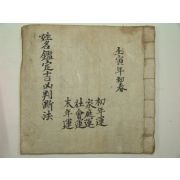 壬寅年初春
初年運
家庭運
社會運
末年運
姓名鑑定吉凶判断法